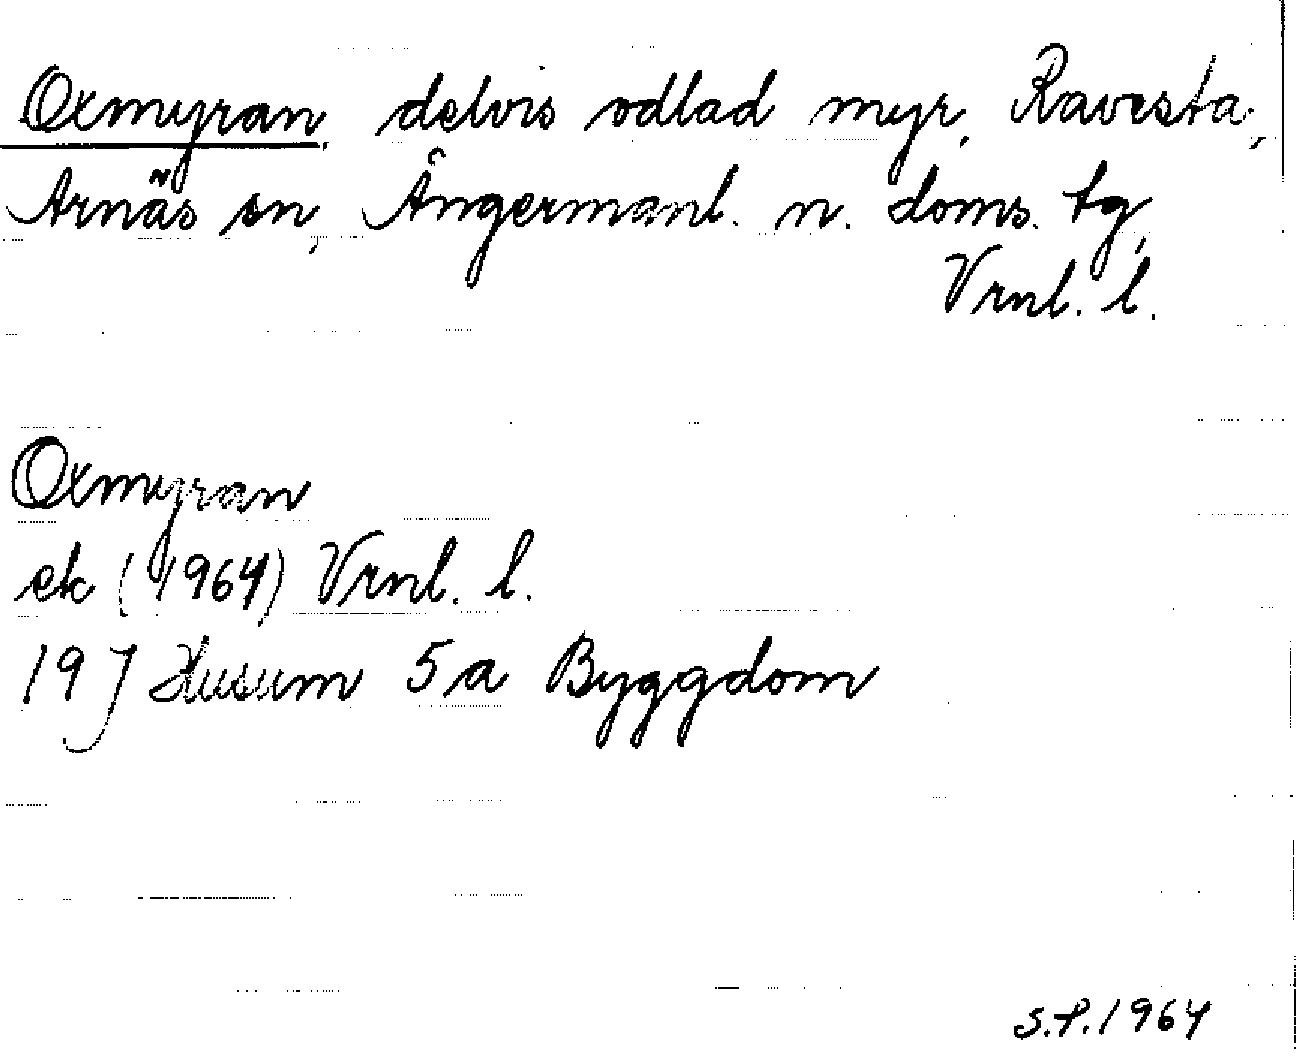 Oxmyran, delvis odlad myr, Ravesta,
Arnäs sn, Ångermanl. n. doms. tg,
Vrnl. l.
Oxmyran
ek (1964) Vrnl. l.
19 J Husum 5 a Byggdom
S.P. 1964